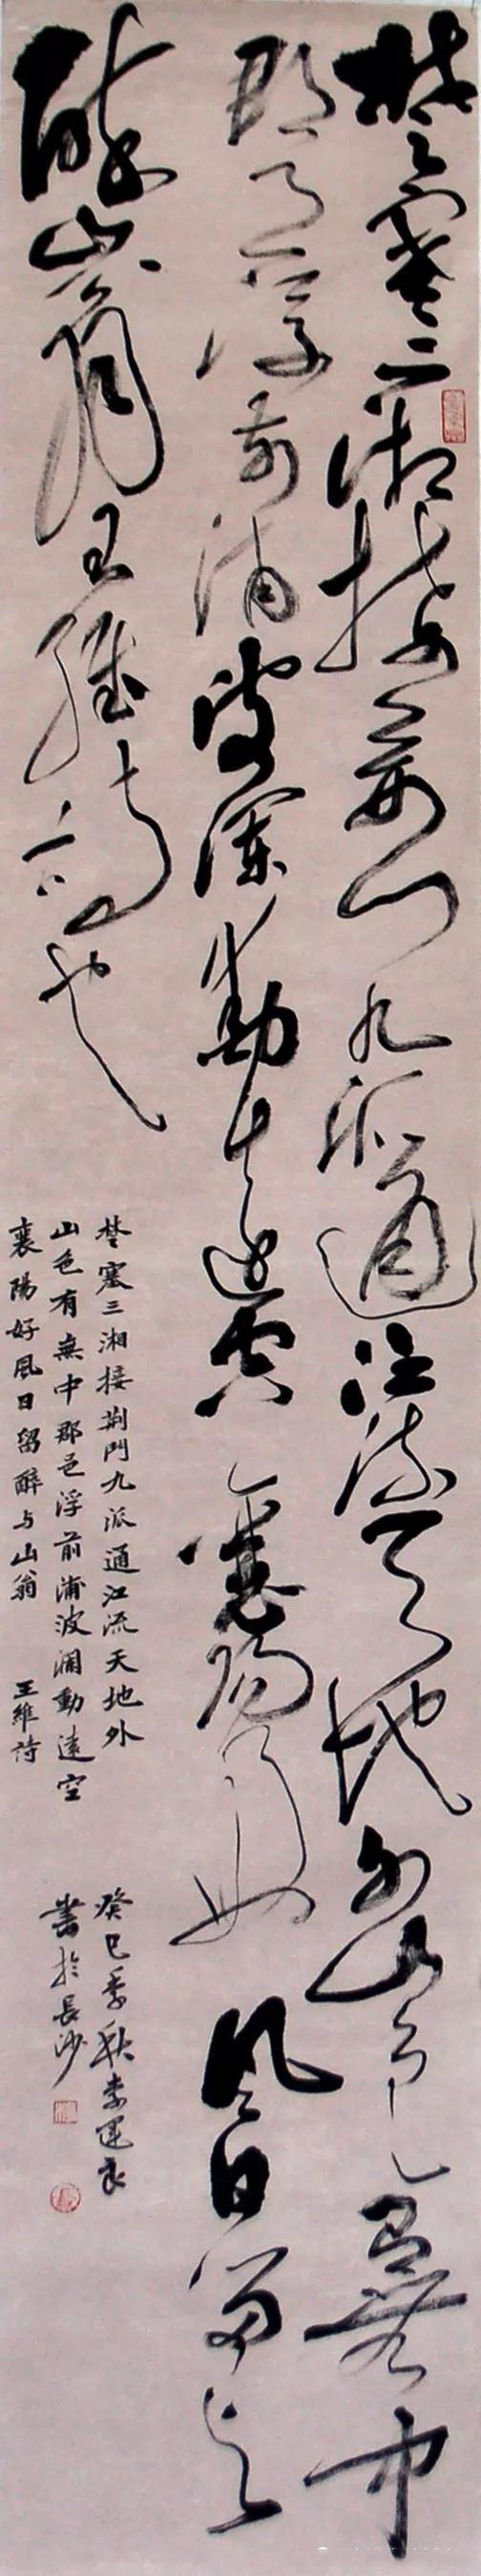 楚塞三湘接荆門九派通江流天地外山色有無中
郡邑浮前浦波瀾動遠空襄陽好風日留与
醉山翁王維詩也
楚塞三湘接荆門九派通江流天地外
山色有無中郡邑浮前浦波瀾動遠空
襄陽好風日留醉与山翁 王維詩
癸巳季秋李運良
書於長沙